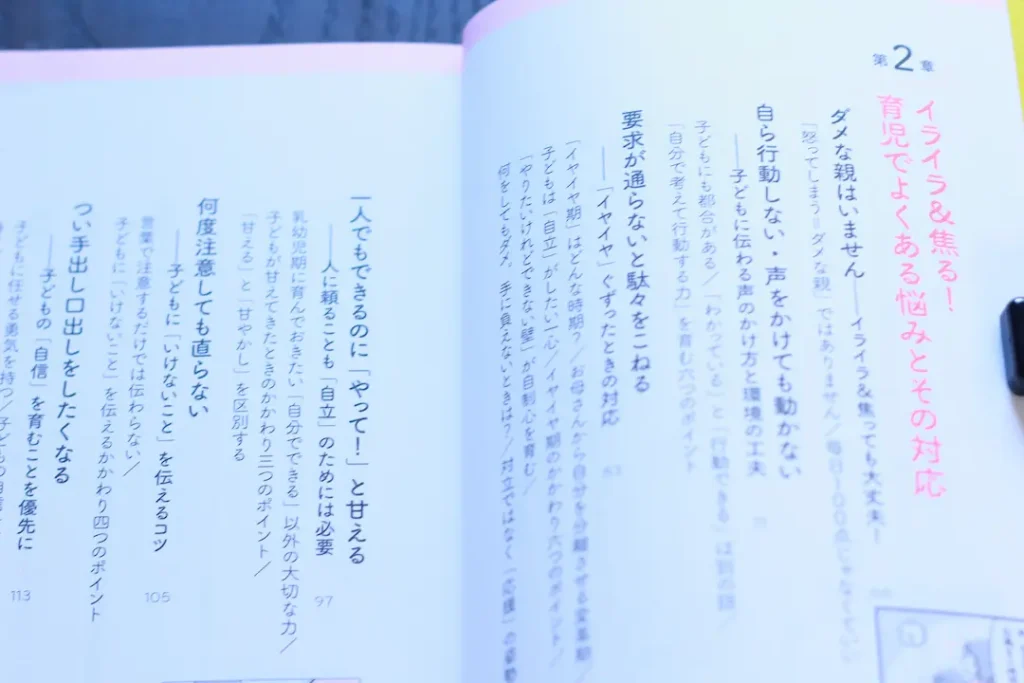 第2章
イライラ&焦る!
育児でよくある悩みとその対応
ダメな親はいません――イライラ&焦っても大丈夫!
「怒ってしまう=ダメな親」ではありません/毎日100点じゃなくていい
自ら行動しない・声をかけても動かない
――子どもに伝わる声のかけ方と環境の工夫
子どもにも都合がある/「わかっている」と「行動できる」は別の話/
「自分で考えて行動する力」を育む六つのポイント
要求が通らないと駄々をこねる
――「イヤイヤ」ぐずったときの対応
83
「イヤイヤ期」はどんな時期?/お母さんから自分を分離させる変革期/
子どもは「自立」がしたい一心/イヤイヤ期のかかわり六つのポイント/
「やりたいけれどできない壁」が自制心を育む/
何をしてもダメ。手に負えないときは?/対立ではなく「応援」の姿勢
一人でもできるのに「やって!」と甘える
――人に頼ることも「自立」のためには必要
97
乳幼児期に育んでおきたい「自分でできる」以外の大切な力/
子どもが甘えてきたときのかかわり三つのポイント/
「甘える」と「甘やかし」を区別する
何度注意しても直らない
――子どもに「いけないこと」を伝えるコツ
105
言葉で注意するだけでは伝わらない/
子どもに「いけないこと」を伝えるかかわり四つのポイント
つい手出し口出しをしたくなる
――子どもの「自信」を育むことを優先に
113
子どもに任せる勇気を持つ/子どもの自信